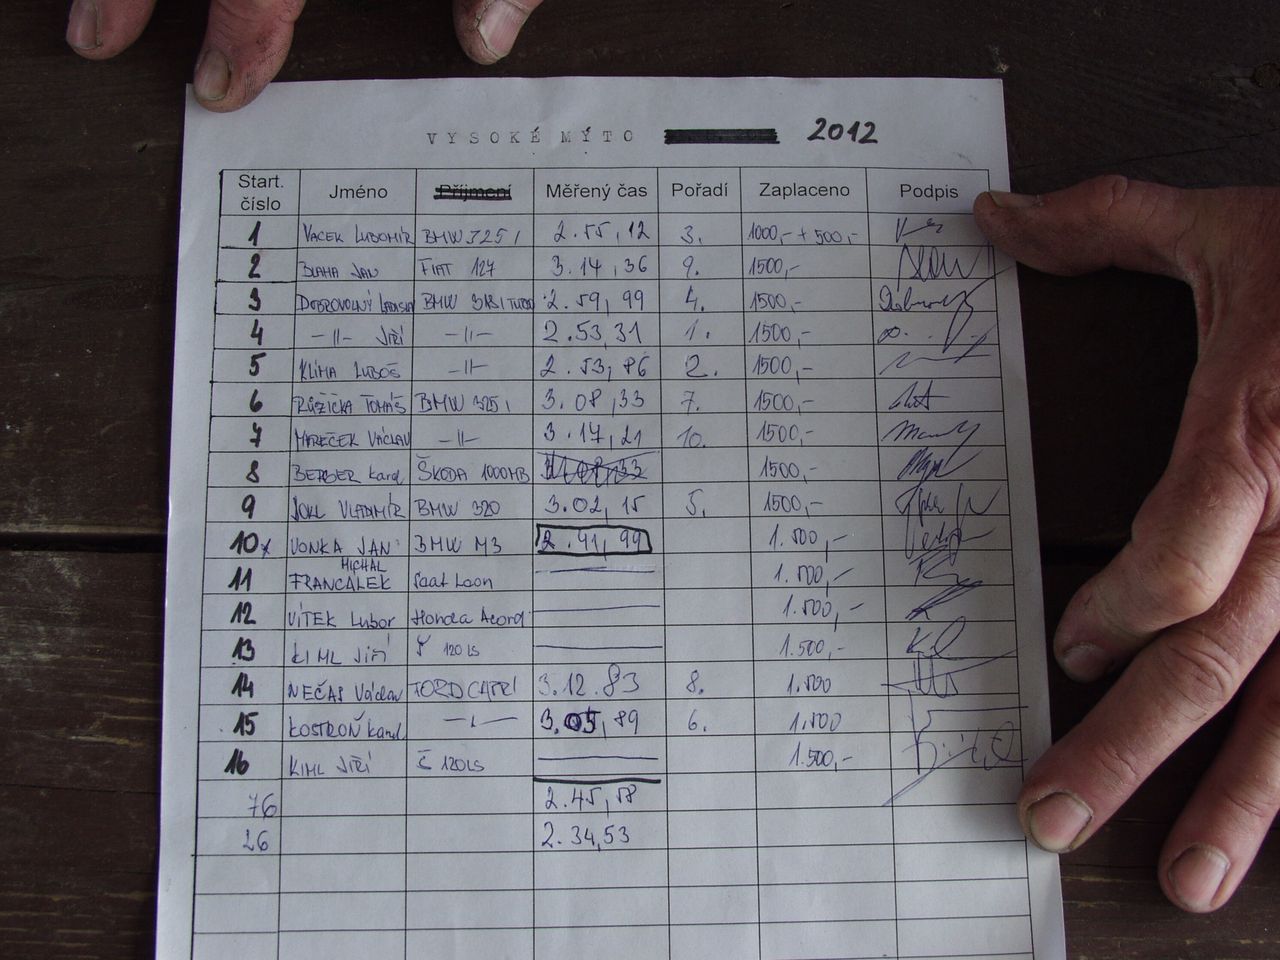 VYSOKÉ MÝTO 2012
Start. číslo Jméno Příjmení Měřený čas Pořadí Zaplaceno Podpis
1 VACEK LUBOMÍR BMW 325 i 2.55,12 3. 1000,- + 500,-
2 BLAHA JAN FIAT 127 3.14,36 9. 1500,-
3 DOBROVOLNÝ BMW 2.59,99 4. 1500,-
4 -||- JIŘÍ -||- 2.53,31 1. 1500,-
5 KLÍMA LUBOŠ -||- 2.53,86 2. 1500,-
6 RŮŽIČKA TOMÁŠ BMW 325 i 3.08,33 7. 1500,-
7 MAREČEK VÁCLAV -||- 3.17,21 10. 1500,-
8 BERGER Karel ŠKODA 1000MB 1500,-
9 VLADIMÍR BMW 320 3.02,15 5. 1500,-
10x VONKA JAN BMW M3 2.41,99 1.500,-
11 FRANCÁLEK MICHAL Seat Leon 1.500,-
12 VÍTEK Lubor Honda Acord 1.500,-
13 KIML JIŘÍ 120LS 1.500,-
14 NEČAS Václav FORD CAPRI 3.12.83 8. 1.500
15 KOSTROŇ Karel 3.05,89 6. 1.500
16 KIML JIŘÍ Š 120LS 1.500,-
76 2.45,58
26 2.34,53